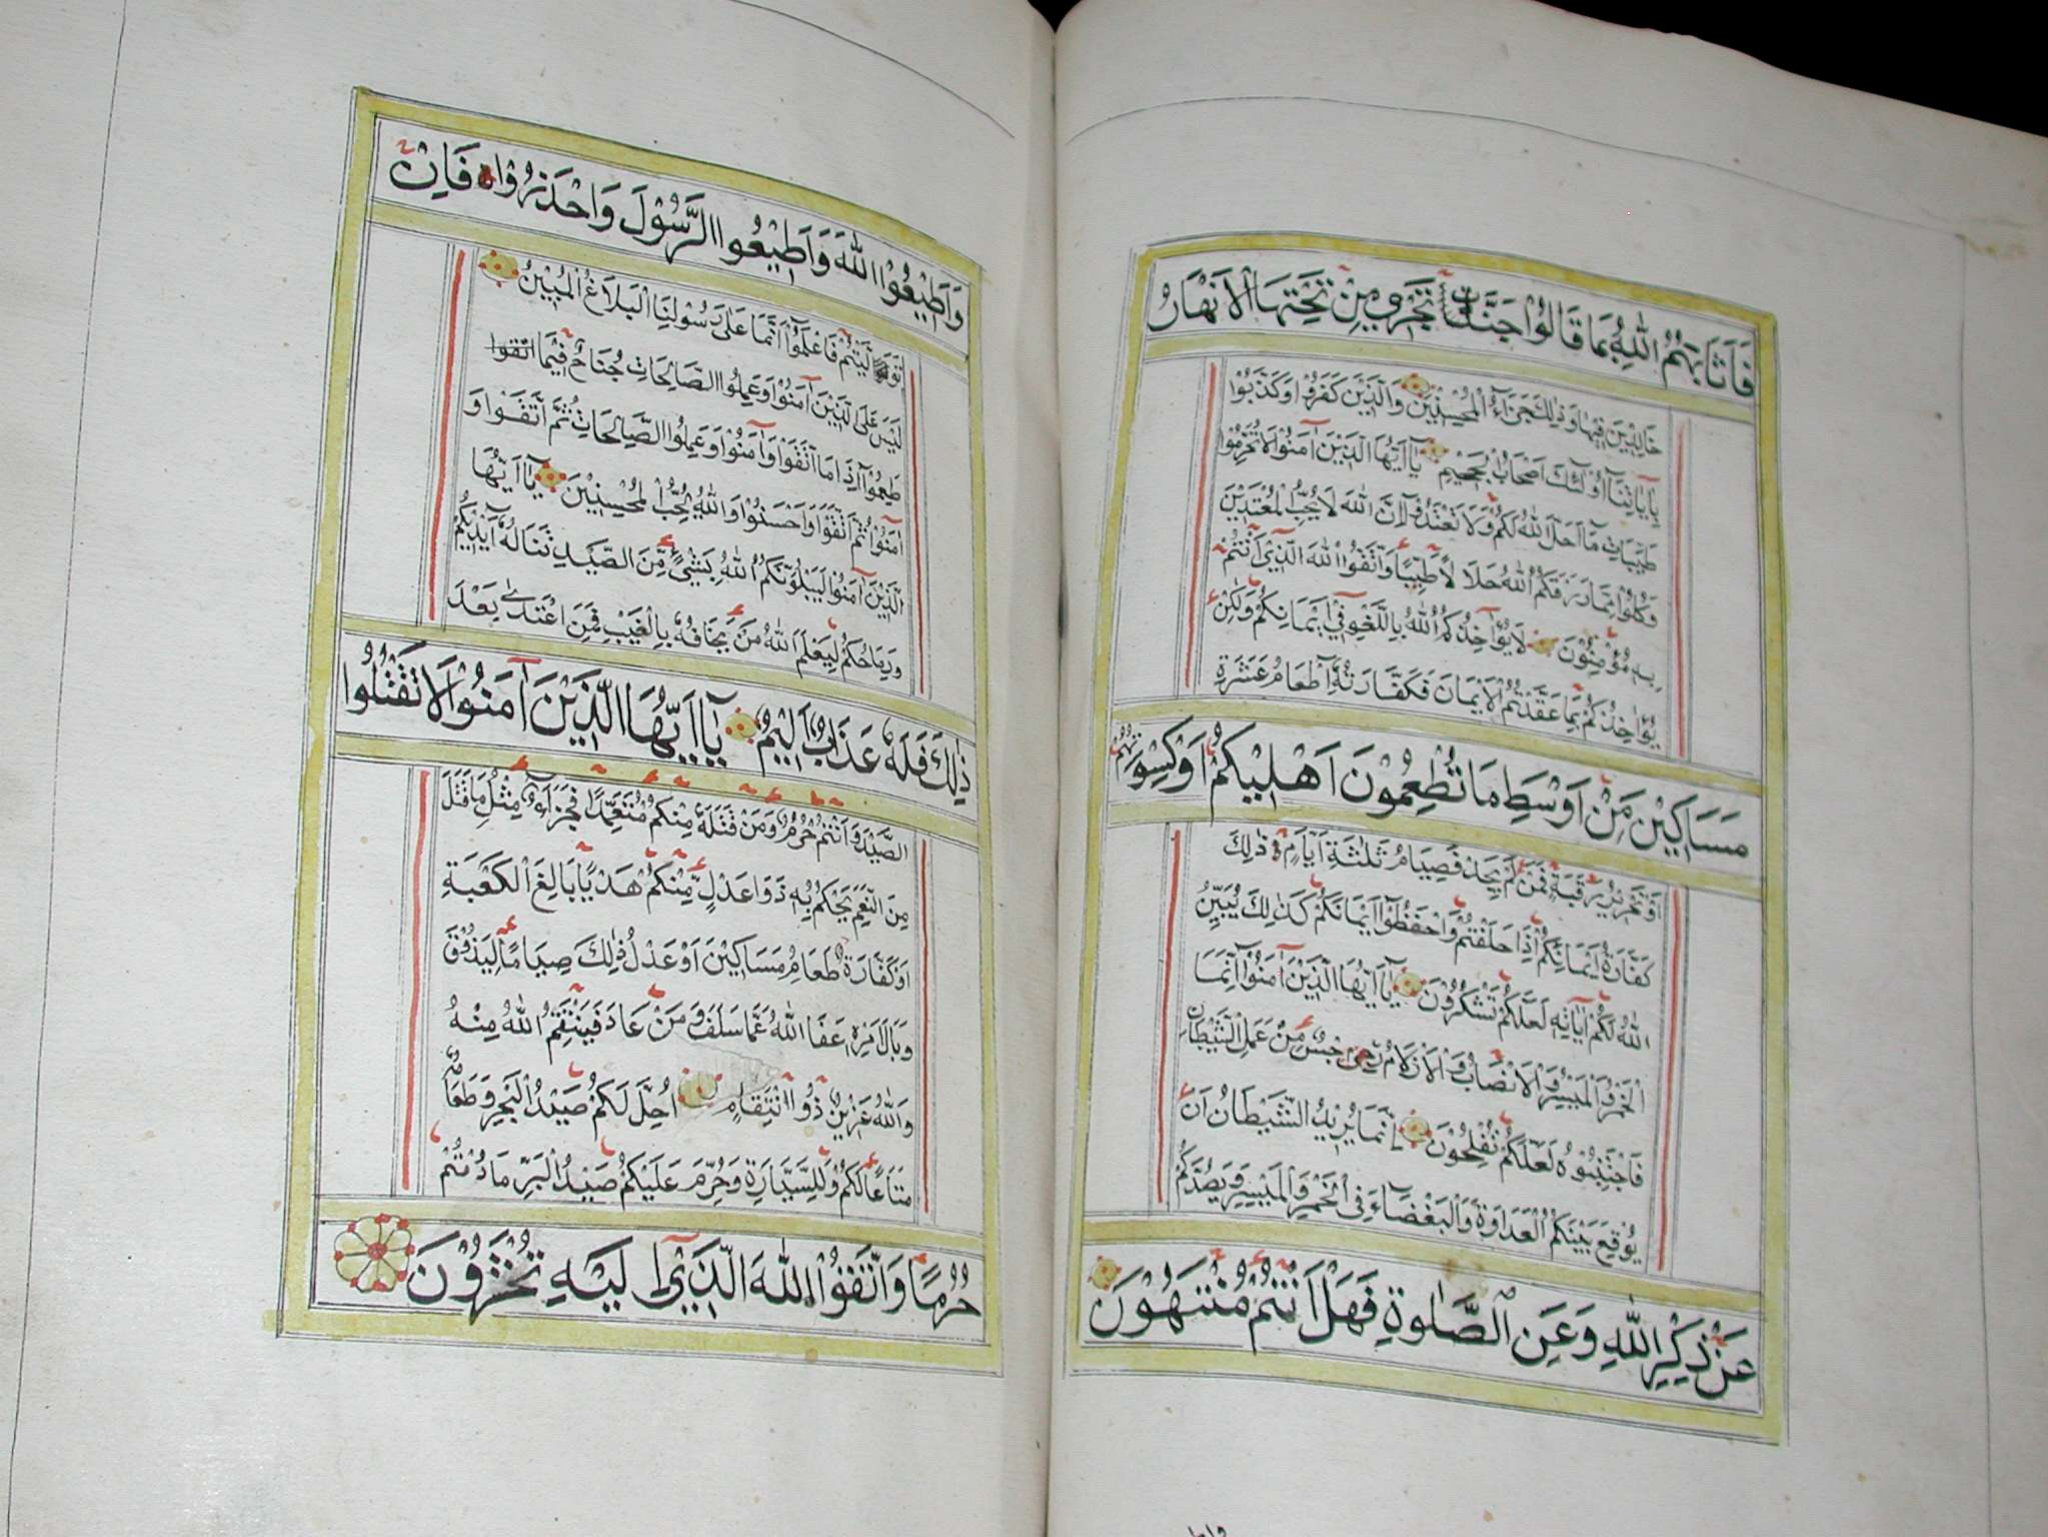 فَاَثَابَهُمُ اللّٰهُ بِمَا قَالُوْا جَنَّاتٍ تَجْرِي مِنْ تَحْتِهَا الْاَنْهَارُ
خَالِدِيْنَ فِيْهَا وَذٰلِكَ جَزَآءُ الْمُحْسِنِيْنَ وَالَّذِيْنَ كَفَرُوْا وَكَذَّبُوْا
بِاٰيَاتِنَا اُولٰٓئِكَ اَصْحَابُ الْجَحِيْمِ يَا اَيُّهَا الَّذِيْنَ اٰمَنُوْا لَا تُحَرِّمُوْا
طَيِّبَاتِ مَا اَحَلَّ اللّٰهُ لَكُمْ وَلَا تَعْتَدُوْا اِنَّ اللّٰهَ لَا يُحِبُّ الْمُعْتَدِيْنَ
وَكُلُوْا مِمَّا رَزَقَكُمُ اللّٰهُ حَلَالًا طَيِّبًا وَاتَّقُوا اللّٰهَ الَّذِيْ اَنْتُمْ
بِهٖ مُؤْمِنُوْنَ لَا يُؤَاخِذُكُمُ اللّٰهُ بِاللَّغْوِ فِيْ اَيْمَانِكُمْ وَلٰكِنْ
يُؤَاخِذُكُمْ بِمَا عَقَّدْتُمُ الْاَيْمَانَ فَكَفَّارَتُهُ اِطْعَامُ عَشَرَةِ
مَسَاكِيْنَ مِنْ اَوْسَطِ مَا تُطْعِمُوْنَ اَهْلِيْكُمْ اَوْ كِسْوَتُهُمْ
اَوْ تَحْرِيْرُ رَقَبَةٍ فَمَنْ لَمْ يَجِدْ فَصِيَامُ ثَلٰثَةِ اَيَّامٍ ذٰلِكَ
كَفَّارَةُ اَيْمَانِكُمْ اِذَا حَلَفْتُمْ وَاحْفَظُوْا اَيْمَانَكُمْ كَذٰلِكَ يُبَيِّنُ
اللّٰهُ لَكُمْ اٰيَاتِهٖ لَعَلَّكُمْ تَشْكُرُوْنَ يَا اَيُّهَا الَّذِيْنَ اٰمَنُوْا اِنَّمَا
الْخَمْرُ وَالْمَيْسِرُ وَالْاَنْصَابُ وَالْاَزْلَامُ رِجْسٌ مِنْ عَمَلِ الشَّيْطَانِ
فَاجْتَنِبُوْهُ لَعَلَّكُمْ تُفْلِحُوْنَ اِنَّمَا يُرِيْدُ الشَّيْطَانُ اَنْ
يُوْقِعَ بَيْنَكُمُ الْعَدَاوَةَ وَالْبَغْضَآءَ فِي الْخَمْرِ وَالْمَيْسِرِ وَيَصُدَّكُمْ
عَنْ ذِكْرِ اللّٰهِ وَعَنِ الصَّلٰوةِ فَهَلْ اَنْتُمْ مُنْتَهُوْنَ
وَاَطِيْعُوا اللّٰهَ وَاَطِيْعُوا الرَّسُوْلَ وَاحْذَرُوْا فَاِنْ
تَوَلَّيْتُمْ فَاعْلَمُوْا اَنَّمَا عَلٰى رَسُوْلِنَا الْبَلَاغُ الْمُبِيْنُ
لَيْسَ عَلَى الَّذِيْنَ اٰمَنُوْا وَعَمِلُوا الصَّالِحَاتِ جُنَاحٌ فِيْمَا
طَعِمُوْا اِذَا مَا اتَّقَوْا وَاٰمَنُوْا وَعَمِلُوا الصَّالِحَاتِ ثُمَّ اتَّقَوْا وَ
اٰمَنُوْا ثُمَّ اتَّقَوْا وَاَحْسَنُوْا وَاللّٰهُ يُحِبُّ الْمُحْسِنِيْنَ يَا اَيُّهَا
الَّذِيْنَ اٰمَنُوْا لَيَبْلُوَنَّكُمُ اللّٰهُ بِشَيْءٍ مِنَ الصَّيْدِ تَنَالُهُ اَيْدِيْكُمْ
وَرِمَاحُكُمْ لِيَعْلَمَ اللّٰهُ مَنْ يَخَافُهُ بِالْغَيْبِ فَمَنِ اعْتَدٰى بَعْدَ
ذٰلِكَ فَلَهُ عَذَابٌ اَلِيْمٌ يَا اَيُّهَا الَّذِيْنَ اٰمَنُوْا لَا تَقْتُلُوا
الصَّيْدَ وَاَنْتُمْ حُرُمٌ وَمَنْ قَتَلَهُ مِنْكُمْ مُتَعَمِّدًا فَجَزَآءٌ مِثْلُ مَا قَتَلَ
مِنَ النَّعَمِ يَحْكُمُ بِهٖ ذَوَا عَدْلٍ مِنْكُمْ هَدْيًا بَالِغَ الْكَعْبَةِ
اَوْ كَفَّارَةٌ طَعَامُ مَسَاكِيْنَ اَوْ عَدْلُ ذٰلِكَ صِيَامًا لِيَذُوْقَ
وَبَالَ اَمْرِهٖ عَفَا اللّٰهُ عَمَّا سَلَفَ وَمَنْ عَادَ فَيَنْتَقِمُ اللّٰهُ مِنْهُ
وَاللّٰهُ عَزِيْزٌ ذُو انْتِقَامٍ اُحِلَّ لَكُمْ صَيْدُ الْبَحْرِ وَطَعَامُهُ
مَتَاعًا لَكُمْ وَلِلسَّيَّارَةِ وَحُرِّمَ عَلَيْكُمْ صَيْدُ الْبَرِّ مَا دُمْتُمْ
حُرُمًا وَاتَّقُوا اللّٰهَ الَّذِيْ اِلَيْهِ تُحْشَرُوْنَ